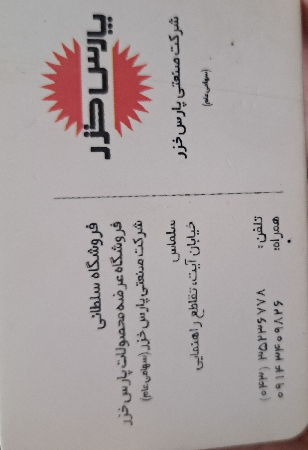 پارس خزر
شرکت صنعتی پارس خزر
(سهامی عام)
فروشگاه سلطانی
فروشگاه عرضه محصولات پارس خزر
شرکت صنعتی پارس خزر (سهامی عام)
سلماس
خیابان آیت، تقاطع راهنمایی
تلفن: ۳۵۲۳۶۸۷۷۸ (۰۴۴۳)
همراه: ۰۹۱۴۳۴۰۹۸۲۶